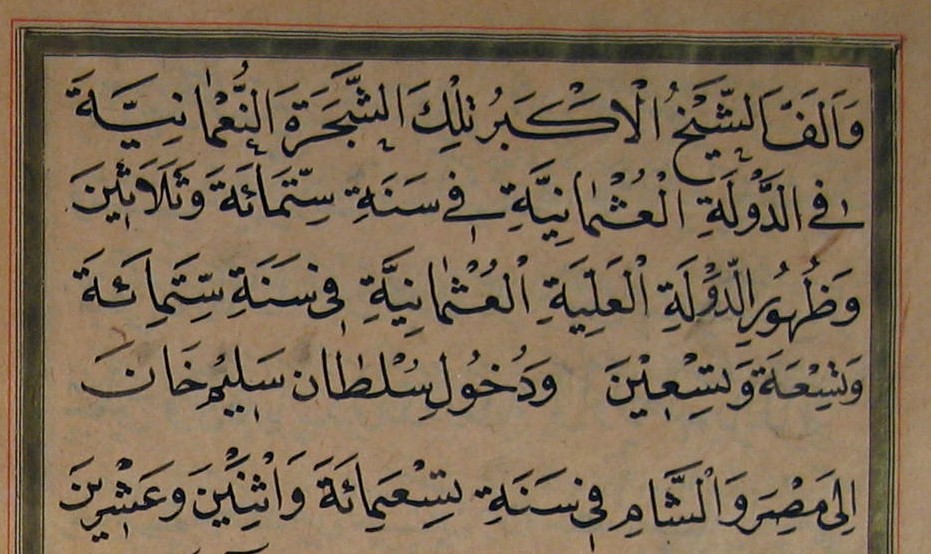 وَاَلَّفَ الشَّيْخُ الْاَكْبَرُ تِلْكَ الشَّجَرَةَ النُّعْمَانِيَّةَ
فِى الدَّوْلَةِ الْعُثْمَانِيَّةِ فِى سَنَةِ سِتَّمِائَةَ وَثَلَاثِينَ
وَظُهُورِ الدَّوْلَةِ الْعَلِيَةِ الْعُثْمَانِيَّةِ فِى سَنَةِ سِتَّمِائَةَ
وَتِسْعَةَ وَتِسْعِيْنَ وَدُخُولِ سُلْطَان سَلِيْم خَانَ
اِلَى مَصْرَ وَالْشَّامِ فِى سَنَةِ تِسْعِمِائَةَ وَاثْنَيْنَ وَعَشْرِينَ